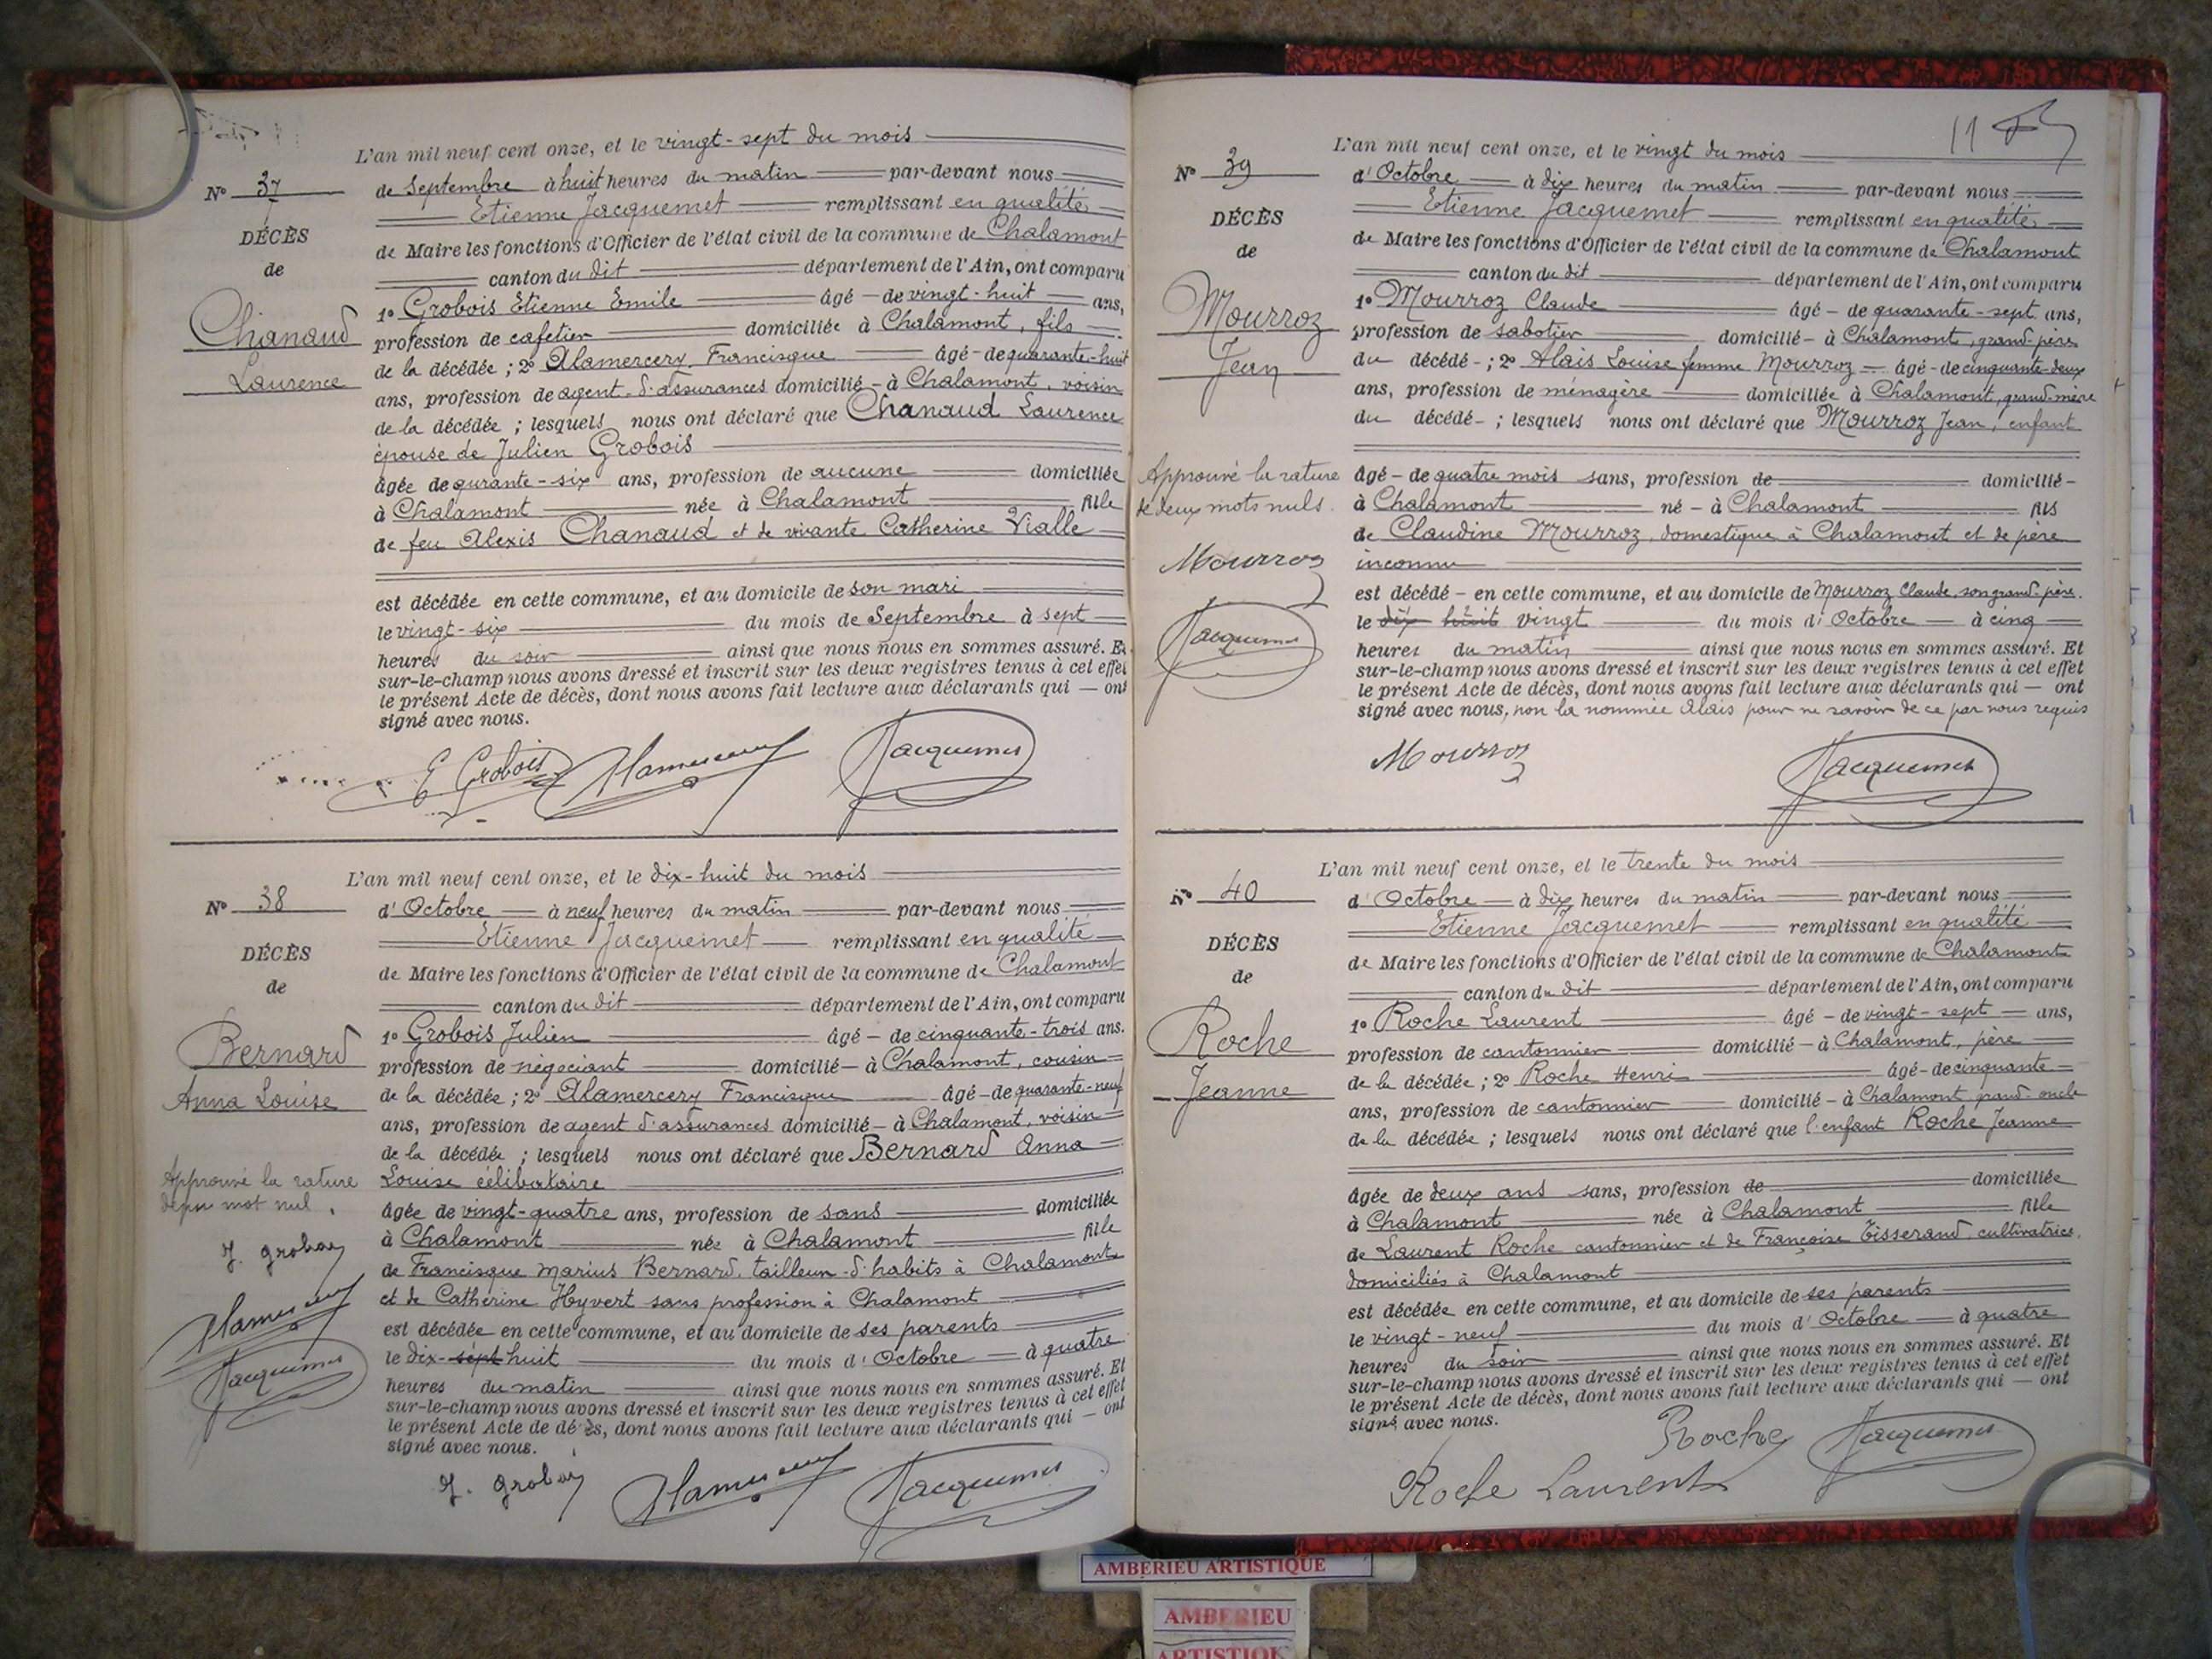 L'an mil neuf cent onze, et le vingt-sept du mois
N° 37
de Septembre à huit heures du matin par-devant nous
Etienne Jacquemet remplissant en qualité
DÉCÈS
de
de Maire les fonctions d'Officier de l'état civil de la commune de Chalamont
canton du dit département de l'Ain, ont comparu
Chanaud
Laurence
1° Grobois Etienne Emile âgé de vingt-huit ans,
profession de cafetier domiciliée à Chalamont, fils
de la décédée ; 2° Alamercery Francisque âgé de quarante-huit
ans, profession de agent d'assurances domicilié à Chalamont, voisin
de la décédée ; lesquels nous ont déclaré que Chanaud Laurence
épouse de Julien Grobois
âgée de qurante-six ans, profession de aucune domiciliée
à Chalamont née à Chalamont fille
de feu Alexis Chanaud et de vivante Catherine Vialle
est décédée en cette commune, et au domicile de son mari
le vingt-six du mois de Septembre à sept
heures du soir ainsi que nous nous en sommes assuré. Et
sur-le-champ nous avons dressé et inscrit sur les deux registres tenus à cet effet
le présent Acte de décès, dont nous avons fait lecture aux déclarants qui — ont
signé avec nous.
E Grobois Alamercery Jacquemet
L'an mil neuf cent onze, et le dix-huit du mois
N° 38
d'Octobre à neuf heures du matin par-devant nous
Etienne Jacquemet remplissant en qualité
DÉCÈS
de
de Maire les fonctions d'Officier de l'état civil de la commune de Chalamont
canton du dit département de l'Ain, ont comparu
Bernard
Anna Louise
1° Grobois Julien âgé — de cinquante-trois ans.
profession de négociant domicilié — à Chalamont, cousin
de la décédée ; 2° Alamercery Francisque âgé — de quarante-neuf
ans, profession de agent d'assurances domicilié — à Chalamont, voisin
de la décédée ; lesquels nous ont déclaré que Bernard Anna
Louise célibataire
Approuvé la rature
d'un mot nul.
J. Grobois
Alamercery
Jacquemet
âgée de vingt-quatre ans, profession de sans domiciliée
à Chalamont née à Chalamont fille
de Francisque Marius Bernard, tailleur d'habits à Chalamont
et de Catherine Hyvert sans profession à Chalamont
est décédée en cette commune, et au domicile de ses parents
le dix-sept huit du mois d'Octobre à quatre
heures du matin ainsi que nous nous en sommes assuré. Et
sur-le-champ nous avons dressé et inscrit sur les deux registres tenus à cet effet
le présent Acte de décès, dont nous avons fait lecture aux déclarants qui — ont
signé avec nous.
J. Grobois Alamercery Jacquemet
L'an mil neuf cent onze, et le vingt du mois
N° 39
d'Octobre à dix heures du matin par-devant nous
Etienne Jacquemet remplissant en qualité
DÉCÈS
de
de Maire les fonctions d'Officier de l'état civil de la commune de Chalamont
canton du dit département de l'Ain, ont comparu
Mourroz
Jean
1° Mourroz Claude âgé — de quarante-sept ans,
profession de sabotier domicilié — à Chalamont, grand-père
du décédé — ; 2° Alais Louise femme Mourroz âgé — de cinquante-deux
ans, profession de ménagère domiciliée à Chalamont, grand-mère
du décédé — ; lesquels nous ont déclaré que Mourroz Jean, enfant
Approuvé la rature
de deux mots nuls.
Mourroz
Jacquemet
âgé — de quatre mois sans, profession de domicilié —
à Chalamont né — à Chalamont fils
de Claudine Mourroz, domestique à Chalamont et de père
inconnu
est décédé — en cette commune, et au domicile de Mourroz Claude, son grand-père.
le dix huit vingt du mois d'Octobre à cinq
heures du matin ainsi que nous nous en sommes assuré. Et
sur-le-champ nous avons dressé et inscrit sur les deux registres tenus à cet effet
le présent Acte de décès, dont nous avons fait lecture aux déclarants qui — ont
signé avec nous, non la nommée Alais pour ne savoir de ce par nous requis
Mourroz Jacquemet
L'an mil neuf cent onze, et le trente du mois
N° 40
d'Octobre à dix heures du matin par-devant nous
Etienne Jacquemet remplissant en qualité
DÉCÈS
de
de Maire les fonctions d'Officier de l'état civil de la commune de Chalamont
canton du dit département de l'Ain, ont comparu
Roche
Jeanne
1° Roche Laurent âgé — de vingt-sept ans,
profession de cantonnier domicilié — à Chalamont, père
de la décédée ; 2° Roche Henri âgé — de cinquante
ans, profession de cantonnier domicilié — à Chalamont grand-oncle
de la décédée ; lesquels nous ont déclaré que l'enfant Roche Jeanne
âgée de deux ans sans, profession de domiciliée
à Chalamont née à Chalamont fille
de Laurent Roche cantonnier et de Françoise Tisserand cultivatrice,
domiciliés à Chalamont
est décédée en cette commune, et au domicile de ses parents
le vingt-neuf du mois d'Octobre à quatre
heures du soir ainsi que nous nous en sommes assuré. Et
sur-le-champ nous avons dressé et inscrit sur les deux registres tenus à cet effet
le présent Acte de décès, dont nous avons fait lecture aux déclarants qui — ont
signé avec nous.
Roche Jacquemet
Roche Laurent
AMBERIEU ARTISTIQUE
AMBERIEU